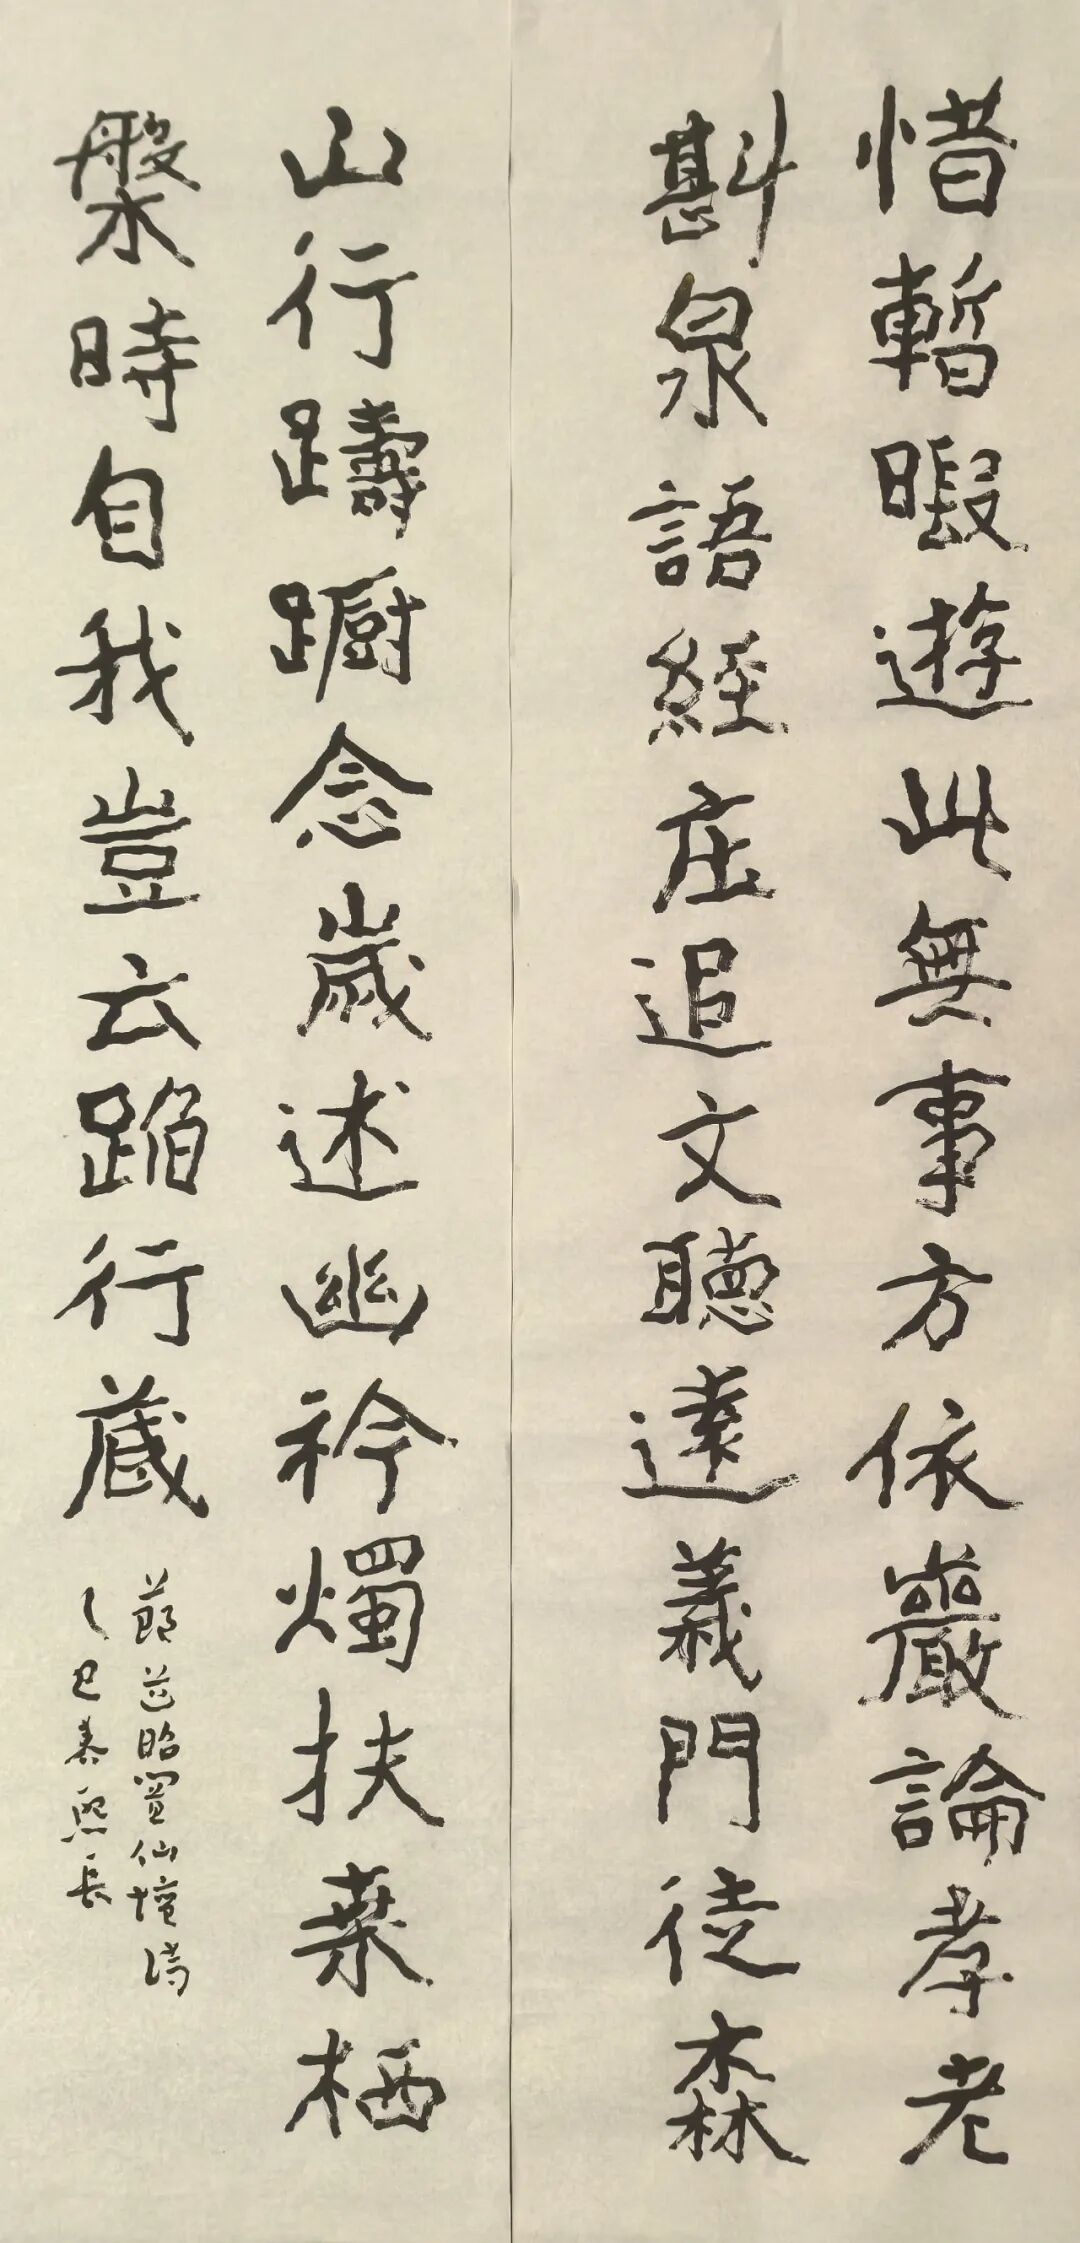 惜暫暇遊此無事方依巖論孝老
斟泉語經庄追文聽遠義門徒森
山行躊蹰念歲述幽衿燭扶桒栖
槃時自我豈云蹈行蔵
節芷昭置仙壇詩
乙巳春熙長